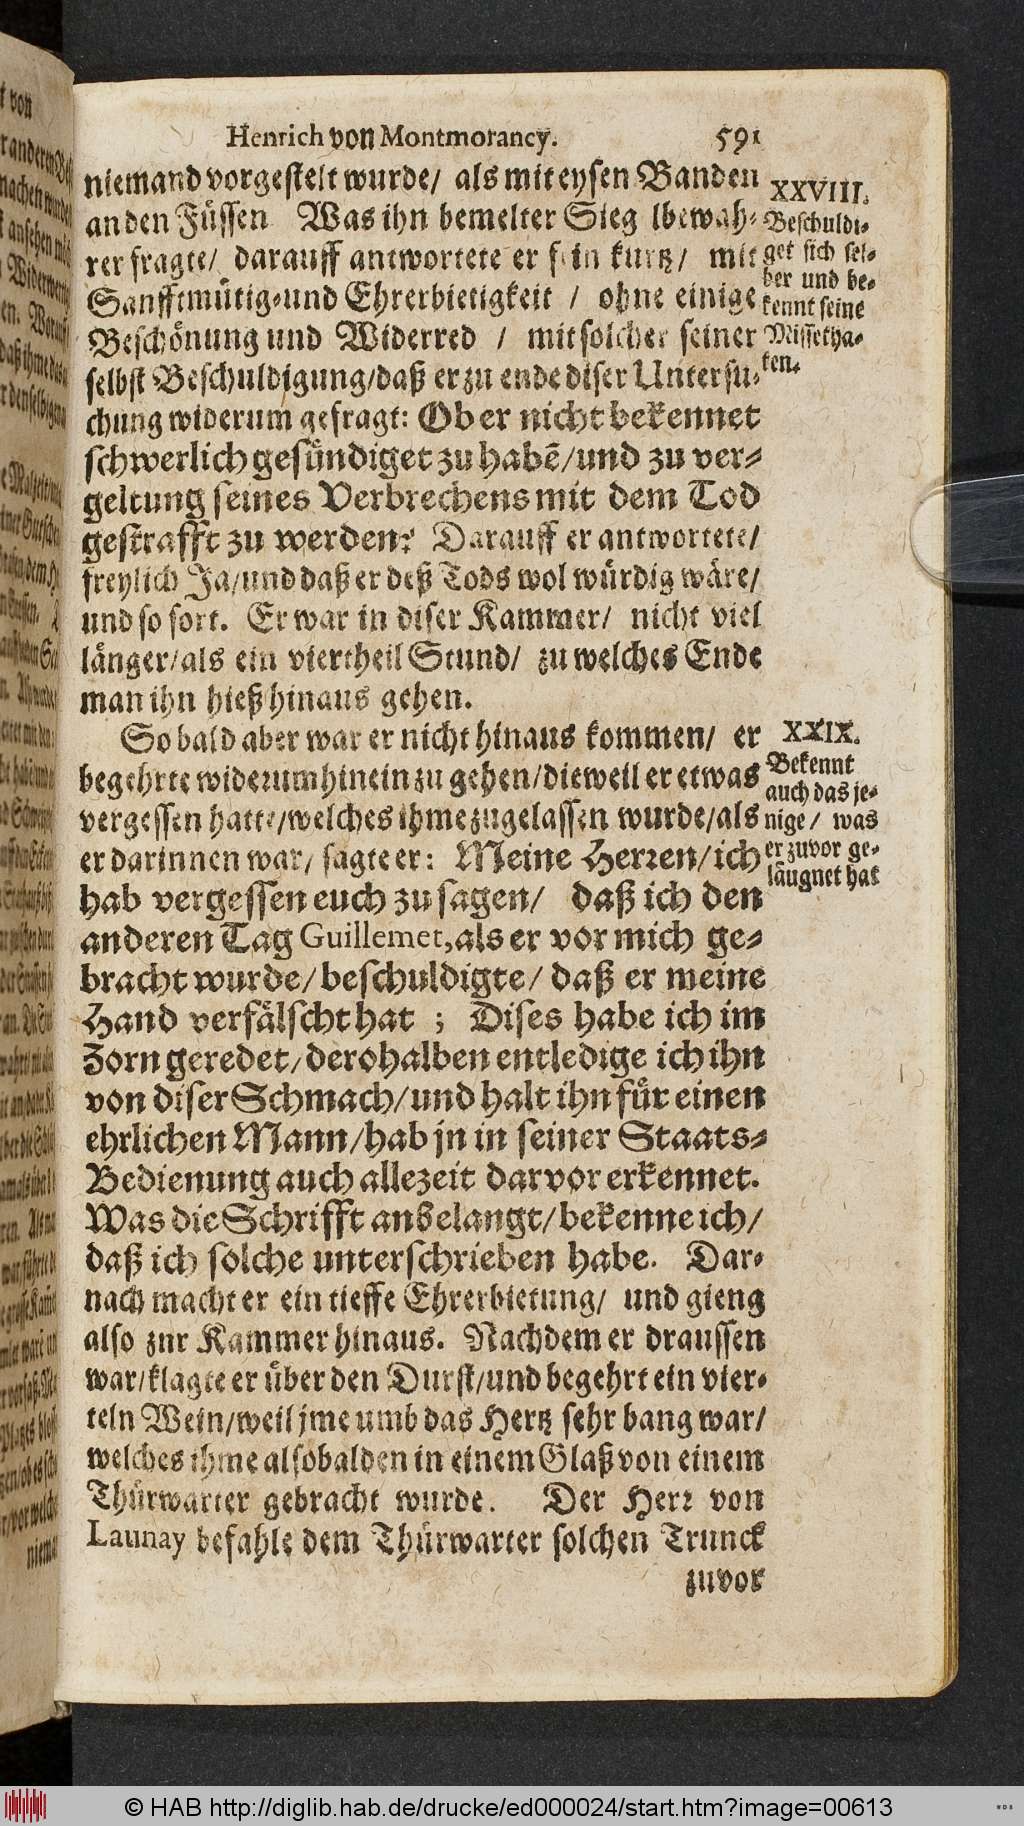 Henrich von Montmorancy. 591
niemand vorgestelt wurde/ als mit eysen Banden
an den Füssen Was ihn bemelter Sieg lbewah-
rer fragte/ darauff antwortete er fein kurtz/ mit
Sanfftmütig- und Ehrerbietigkeit / ohne einige
Beschönung und Widerred / mit solcher seiner
selbst Beschuldigung/daß er zu ende diser Untersu-
chung widerum gefragt: Ob er nicht bekennet
schwerlich gesündiget zu habē/und zu ver-
geltung seines Verbrechens mit dem Tod
gestrafft zu werden? Darauff er antwortete/
freylich Ja/und daß er deß Tods wol würdig wäre/
und so fort. Er war in diser Kammer/ nicht viel
länger/als ein viertheil Stund/ zu welches Ende
man ihn hieß hinaus gehen.
XXVIII.
Beschuldi-
get sich sel-
ber und be-
kennt seine
Missetha-
ten.
So bald aber war er nicht hinaus kommen/ er
begehrte widerum hinein zu gehen/dieweil er etwas
vergessen hatte/welches ihme zugelassen wurde/als
er darinnen war/ sagte er: Meine Herren/ich
hab vergessen euch zu sagen/ daß ich den
anderen Tag Guillemet, als er vor mich ge-
bracht wurde/beschuldigte/ daß er meine
Hand verfälscht hat ; Dises habe ich im
Zorn geredet/derohalben entledige ich ihn
von diser Schmach/und halt ihn für einen
ehrlichen Mann/hab jn in seiner Staats-
Bedienung auch allezeit darvor erkennet.
Was die Schrifft anbelangt/bekenne ich/
daß ich solche unterschrieben habe. Dar-
nach macht er ein tieffe Ehrerbietung/ und gieng
also znr Kammer hinaus. Nachdem er draussen
war/klagte er über den Durst/und begehrt ein vier-
teln Wein/weil jme umb das Hertz sehr bang war/
welches ihme alsobalden in einem Glaß von einem
Thürwarter gebracht wurde. Der Herr von
Launay befahle dem Thürwarter solchen Trunck
zuvor
XXIX.
Bekennt
auch das je-
nige/ was
er zuvor ge-
läugnet hat
© HAB http://diglib.hab.de/drucke/ed000024/start.htm?image=00613